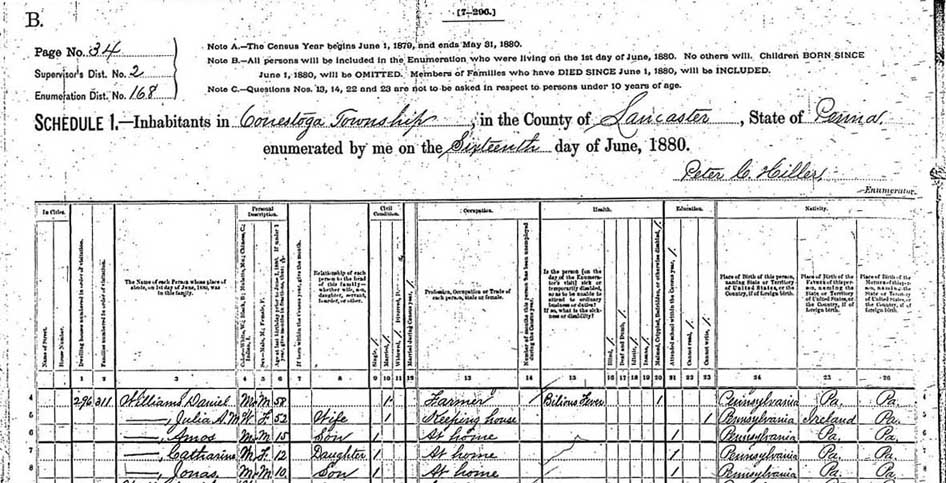 [7-296.]
B.
Page No. 34
Supervisor's Dist. No. 2
Enumeration Dist. No. 168
Note A.—The Census Year begins June 1, 1879, and ends May 31, 1880.
Note B.—All persons will be included in the Enumeration who were living on the 1st day of June, 1880. No others will. Children BORN SINCE
June 1, 1880, will be OMITTED. Members of Families who have DIED SINCE June 1, 1880, will be INCLUDED.
Note C.—Questions Nos. 13, 14, 22 and 23 are not to be asked in respect to persons under 10 years of age.
SCHEDULE 1.—Inhabitants in Conestoga Township, in the County of Lancaster, State of Penna
enumerated by me on the Sixteenth day of June, 1880.
Peter C. Hiller,
Enumerator.
In Cities. Personal Description. Civil Condition. Occupation. Health. Education. Nativity.
Name of Street.
House Number.
Dwelling houses numbered in order of visitation.
Families numbered in order of visitation.
The Name of each Person whose place of
abode, on 1st day of June, 1880, was
in this family.
Color—White, W.; Black, B.; Mulatto, Mu.; Chinese, C.;
Indian, I.
Sex—Male, M.; Female, F.
Age at last birthday prior to June 1, 1880. If under 1
year, give months in fractions, thus:
If born within the Census year, give the month.
Relationship of each
person to the head
of this family—
whether wife, son,
daughter, servant,
boarder, or other.
Single, /
Married, /
Widowed, / Divorced, D.
Married during Census year, /
Profession, Occupation or Trade of
each person, male or female.
Number of months this person has been unemployed
during the Census year.
Is the person [on the
day of the Enumera-
tor's visit] sick or
temporarily disabled,
so as to be unable to
attend to ordinary
business or duties?
If so, what is the sick-
ness or disability?
Blind, /
Deaf and Dumb, /
Idiotic, /
Insane, /
Maimed, Crippled, Bedridden, or otherwise disabled, /
Attended school within the Census year, /
Cannot read, /
Cannot write, /
Place of Birth of this person,
naming State or Territory
of United States, or the
Country, if of foreign birth.
Place of Birth of the
Father of this per-
son, naming the
State or Territory
of United States, or
the Country, if of
foreign birth.
Place of Birth of the
Mother of this per-
son, naming the
State or Territory
of United States, or
the Country, if of
foreign birth.
1 2 3 4 5 6 7 8 9 10 11 12 13 14 15 16 17 18 19 20 21 22 23 24 25 26
4 296 311 Williams Daniel M 58 1 Farmer Bilious Fever Pennsylvania Pa. Pa. 4
—, Julia A. M W F 52 Wife 1 Keeping house 1 Pennsylvania Ireland Pa.
—, Amos M 15 Son 1 At home 1 Pennsylvania Pa. Pa. 6
—, Catharine F 12 Daughter 1 At home 1 Pennsylvania Pa. Pa. 7
8 —, Jonas M 10 Son 1 At home 1 Pennsylvania Pa. Pa. 8